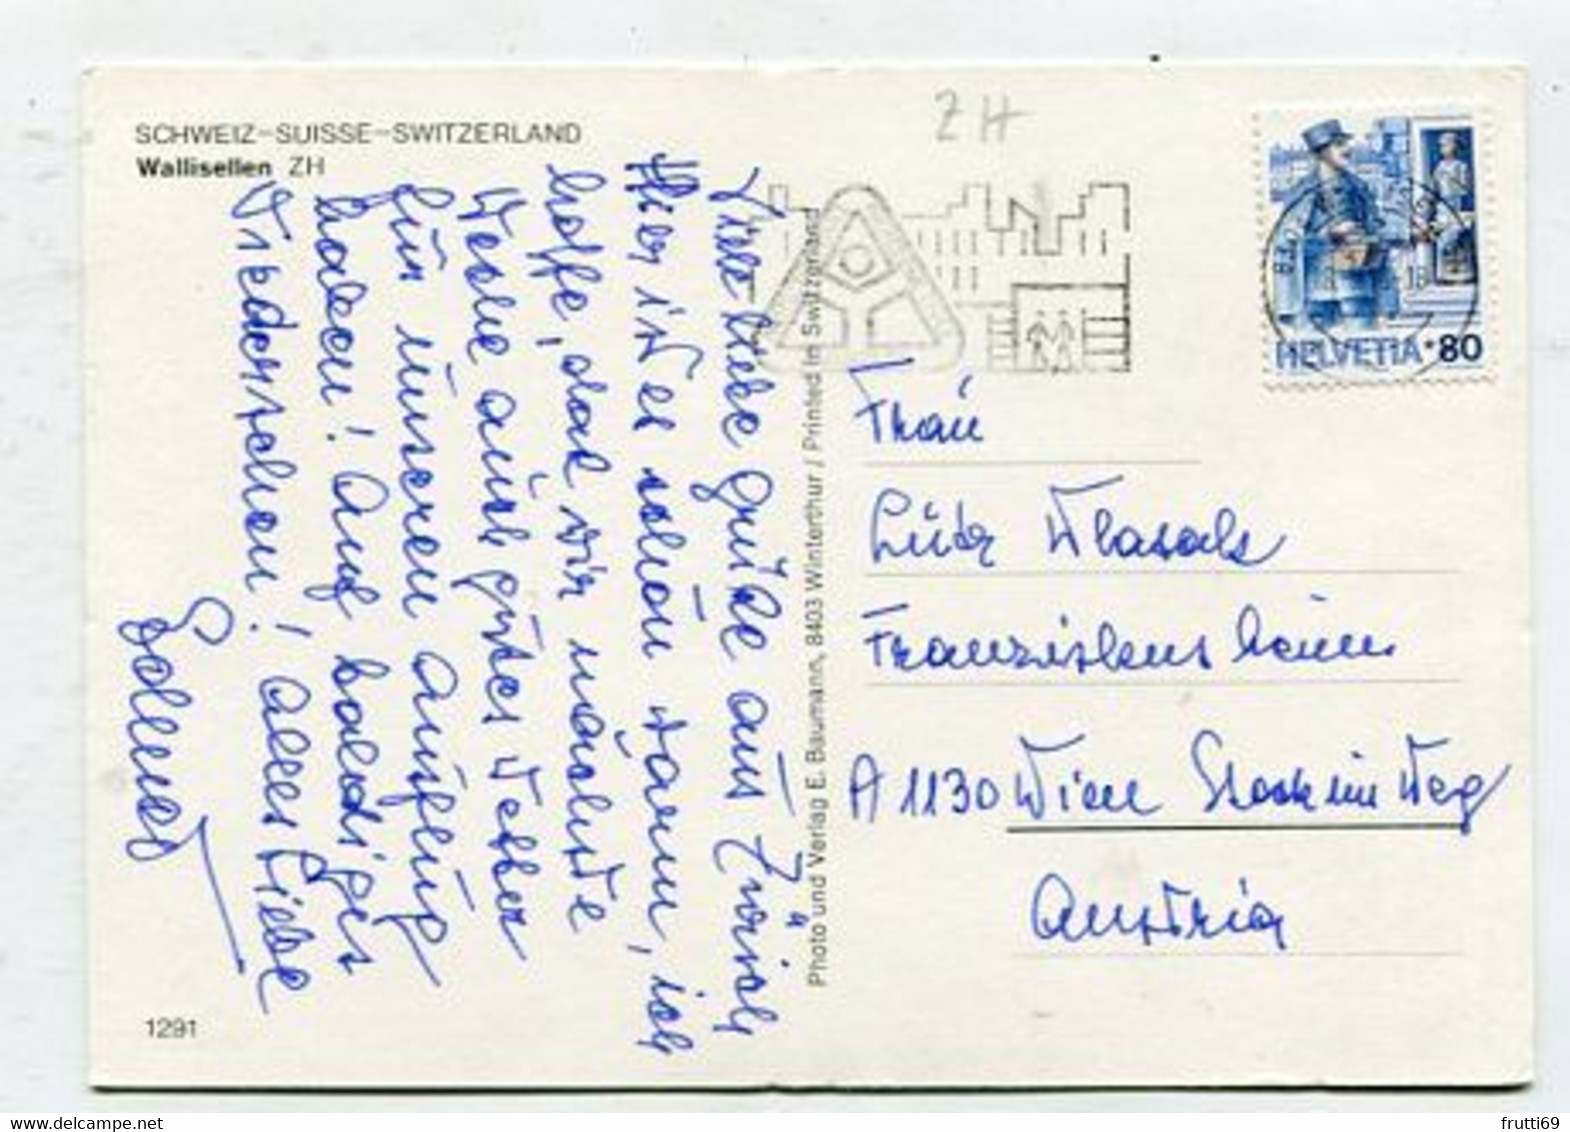 SCHWEIZ-SUISSE-SWITZERLAND
Wallisellen ZH
ZH
HELVETIA 80
Viele liebe Grüße aus Zürich
Hier ist es schön warm, ich
hoffe, daß wir nächste
Woche auch gutes Wetter
für unseren Ausflug
haben! Auf baldiges
Wiedersehen! Alles Liebe
Photo und Verlag E. Baumann, 8403 Winterthur / Printed in Switzerland
Frau
Franziskusheim
A 1130 Wien Stock im Weg
Austria
1291
frutti69